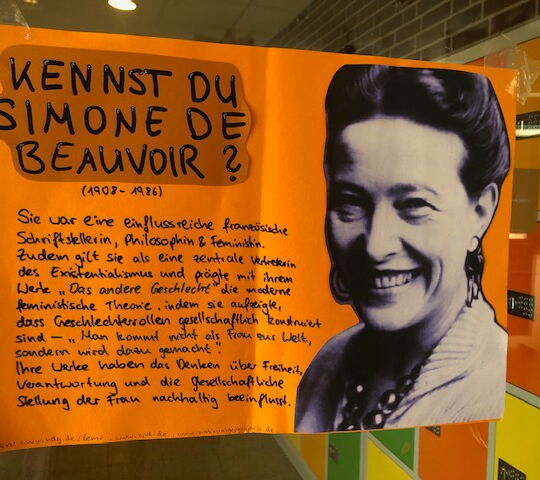 KENNST DU
SIMONE DE
BEAUVOIR ?
(1908-1986)
Sie war eine einflussreiche französische
Schriftstellerin, Philosophin & Feministin.
Zudem gilt sie als eine zentrale Vertreterin
des Existentialismus und prägte mit ihrem
Werk „Das andere Geschlecht" die moderne
feministische Theorie, indem sie aufzeigte,
dass Geschlechterrollen gesellschaftlich konstruiert
sind – „Man kommt nicht als Frau zur Welt,
sondern wird dazu gemacht".
Ihre Werke haben das Denken über Freiheit,
Verantwortung und die gesellschaftliche
Stellung der Frau nachhaltig beeinflusst.